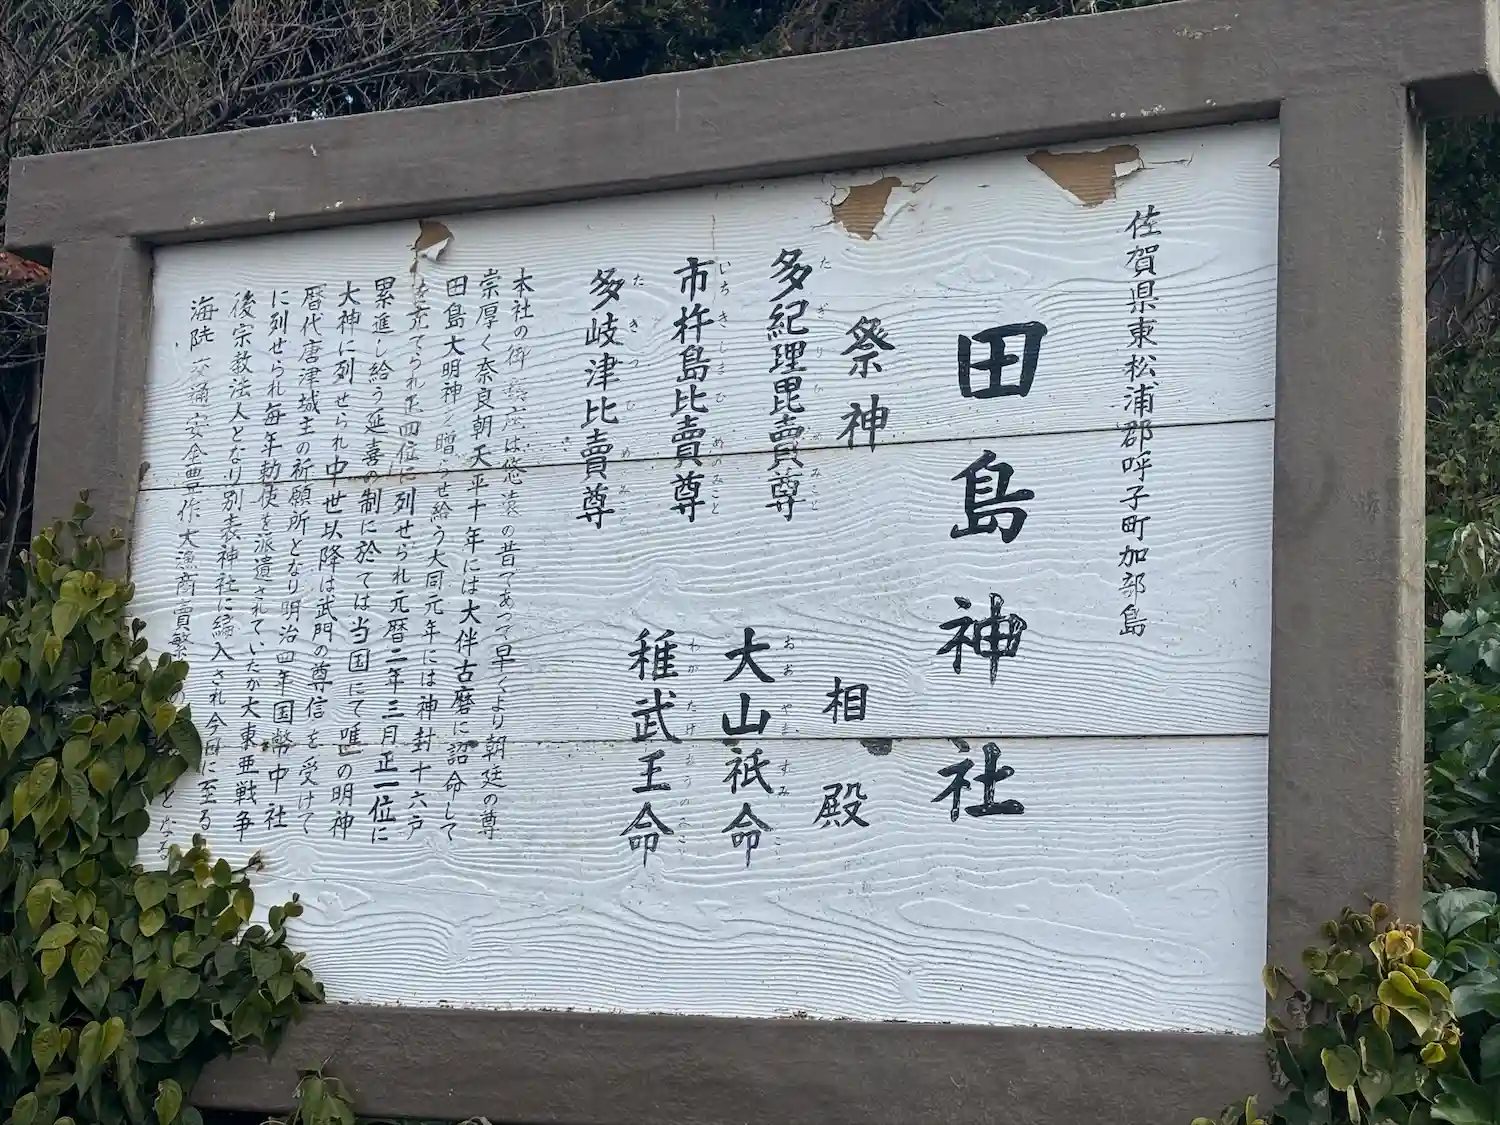 佐賀県東松浦郡呼子町加部島
田島神社
祭神
多紀理毘賣尊
市杵島比賣尊
多岐津比賣尊
相殿
大山祇命
稚武王命
本社の御鎮座は悠遠の昔であって早くより朝廷の尊
崇厚く奈良朝天平十年には大伴古麿に詔命して
田島大明神と贈らせ給う大同元年には神封十六戸
を充てられ正四位に列せられ元暦二年三月正一位に
累進し給う延喜の制に於ては当国にて唯一の明神
大神に列せられ中世以降は武門の尊信を受けて
暦代唐津城主の祈願所となり明治四年国幣中社
に列せられ毎年勅使を派遣されていたが大東亜戦争
後宗教法人となり別表神社に編入され今日に至る
海陸交通安全豊作大漁商賣繁 の となる